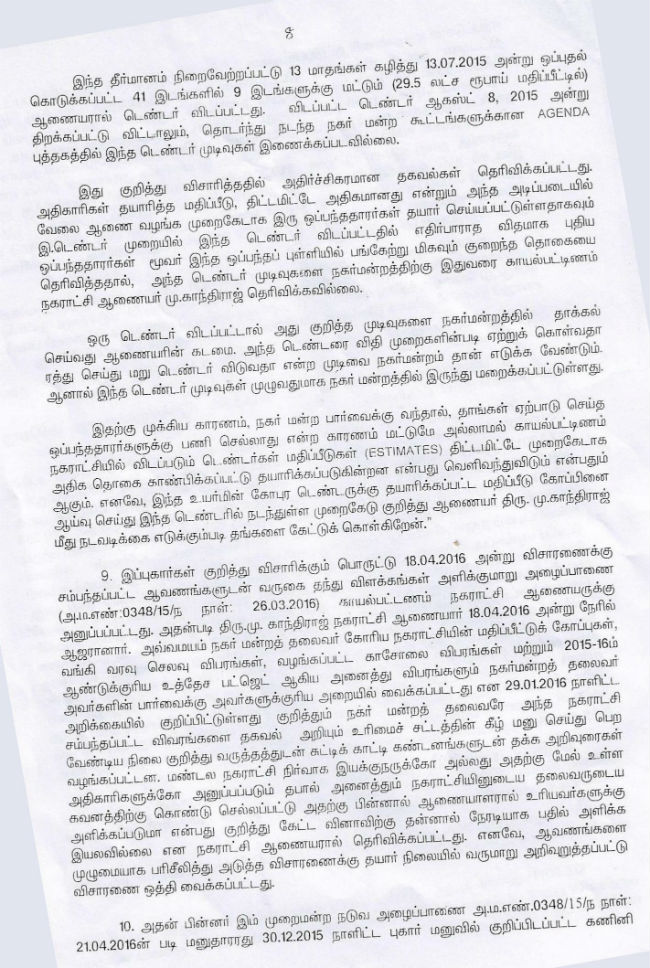 8
இந்த தீர்மானம் நிறைவேற்றப்பட்டு 13 மாதங்கள் கழித்து 13.07.2015 அன்று ஒப்புதல்
கொடுக்கப்பட்ட 41 இடங்களில் 9 இடங்களுக்கு மட்டும் (29.5 லட்ச ரூபாய் மதிப்பீட்டில்)
ஆணையரால் டெண்டர் விடப்பட்டது. விடப்பட்ட டெண்டர் ஆகஸ்ட் 8, 2015 அன்று
திறக்கப்பட்டு விட்டாலும், தொடர்ந்து நடந்த நகர் மன்ற கூட்டங்களுக்கான AGENDA
புத்தகத்தில் இந்த டெண்டர் முடிவுகள் இணைக்கப்படவில்லை.
இது குறித்து விசாரித்ததில் அதிர்ச்சிகரமான தகவல்கள் தெரிவிக்கப்பட்டது.
அதிகாரிகள் தயாரித்த மதிப்பீடு, திட்டமிட்டே அதிகமானது என்றும் அந்த அடிப்படையில்
வேலை ஆணை வழங்க முறைகேடாக இரு ஒப்பந்ததாரர்கள் தயார் செய்யப்பட்டுள்ளதாகவும்
இ.டெண்டர் முறையில் இந்த டெண்டர் விடப்பட்டதில் எதிர்பாராத விதமாக புதிய
ஒப்பந்ததாரர்கள் மூவர் இந்த ஒப்பந்தப் புள்ளியில் பங்கேற்று மிகவும் குறைந்த தொகையை
தெரிவித்ததால், அந்த டெண்டர் முடிவுகளை நகர்மன்றத்திற்கு இதுவரை காயல்பட்டிணம்
நகராட்சி ஆணையர் மு.காந்திராஜ் தெரிவிக்கவில்லை.
ஒரு டெண்டர் விடப்பட்டால் அது குறித்த முடிவுகளை நகர்மன்றத்தில் தாக்கல்
செய்வது ஆணையரின் கடமை. அந்த டெண்டரை விதி முறைகளின்படி ஏற்றுக் கொள்வதா
ரத்து செய்து மறு டெண்டர் விடுவதா என்ற முடிவை நகர்மன்றம் தான் எடுக்க வேண்டும்.
ஆனால் இந்த டெண்டர் முடிவுகள் முழுவதுமாக நகர் மன்றத்தில் இருந்து மறைக்கப்பட்டுள்ளது.
இதற்கு முக்கிய காரணம், நகர் மன்ற பார்வைக்கு வந்தால், தாங்கள் ஏற்பாடு செய்த
ஒப்பந்ததாரர்களுக்கு பணி செல்லாது என்ற காரணம் மட்டுமே அல்லாமல் காயல்பட்டிணம்
நகராட்சியில் விடப்படும் டெண்டர்கள் மதிப்பீடுகள் (ESTIMATES) திட்டமிட்டே முறைகேடாக
அதிக தொகை காண்பிக்கப்பட்டு தயாரிக்கப்படுகின்றன என்பது வெளிவந்துவிடும் என்பதும்
ஆகும். எனவே, இந்த உயர்மின் கோபுர டெண்டருக்கு தயாரிக்கப்பட்ட மதிப்பீடு கோப்பினை
ஆய்வு செய்து இந்த டெண்டரில் நடந்துள்ள முறைகேடு குறித்து ஆணையர் திரு. மு.காந்திராஜ்
மீது நடவடிக்கை எடுக்கும்படி தங்களை கேட்டுக் கொள்கிறேன்."
9. இப்புகார்கள் குறித்து விசாரிக்கும் பொருட்டு 18.04.2016 அன்று விசாரணைக்கு
சம்பந்தப்பட்ட ஆவணங்களுடன் வருகை தந்து விளக்கங்கள் அளிக்குமாறு அழைப்பாணை
(அ.ம.எண்:0348/15/ந நாள்: 26.03.2016) காயல்பட்டணம் நகராட்சி ஆணையருக்கு
அனுப்பப்பட்டது. அதன்படி திரு.மு. காந்திராஜ் நகராட்சி ஆணையார் 18.04.2016 அன்று நேரில்
ஆஜரானார். அவ்வமயம் நகர் மன்றத் தலைவர் கோரிய நகராட்சியின் மதிப்பீட்டுக் கோப்புகள்,
வங்கி வரவு செலவு விபரங்கள், வழங்கப்பட்ட காசோலை விபரங்கள் மற்றும் 2015-16ம்
ஆண்டுக்குரிய உத்தேச பட்ஜெட் ஆகிய அனைத்து விபரங்களும் நகர்மன்றத் தலைவர்
அவர்களின் பார்வைக்கு அவர்களுக்குரிய அறையில் வைக்கப்பட்டது என 29.01.2016 நாளிட்ட
அறிக்கையில் குறிப்பிட்டுள்ளது குறித்தும் நகர் மன்றத் தலைவரே அந்த நகராட்சி
சம்பந்தப்பட்ட விவரங்களை தகவல் அறியும் உரிமைச் சட்டத்தின் கீழ் மனு செய்து பெற
வேண்டிய நிலை குறித்து வருத்தத்துடன் சுட்டிக் காட்டி கண்டனங்களுடன் தக்க அறிவுரைகள்
வழங்கப்பட்டன. மண்டல நகராட்சி நிர்வாக இயக்குநருக்கோ அல்லது அதற்கு மேல் உள்ள
அதிகாரிகளுக்கோ அனுப்பப்படும் தபால் அனைத்தும் நகராட்சியினுடைய தலைவருடைய
கவனத்திற்கு கொண்டு செல்லப்பட்டு அதற்கு பின்னால் ஆணையாளரால் உரியவர்களுக்கு
அளிக்கப்படுமா என்பது குறித்து கேட்ட வினாவிற்கு தன்னால் நேரடியாக பதில் அளிக்க
இயலவில்லை என நகராட்சி ஆணையரால் தெரிவிக்கப்பட்டது. எனவே, ஆவணங்களை
முழுமையாக பரிசீலித்து அடுத்த விசாரணைக்கு தயார் நிலையில் வருமாறு அறிவுறுத்தப்பட்டு
விசாரணை ஒத்தி வைக்கப்பட்டது.
10. அதன் பின்னர் இம் முறைமன்ற நடுவ அழைப்பாணை அ.ம.எண்.0348/15/ந நாள்:
21.04.2016ன் படி மனுதாரரது 30.12.2015 நாளிட்ட புகார் மனுவில் குறிப்பிடப்பட்ட கணினி